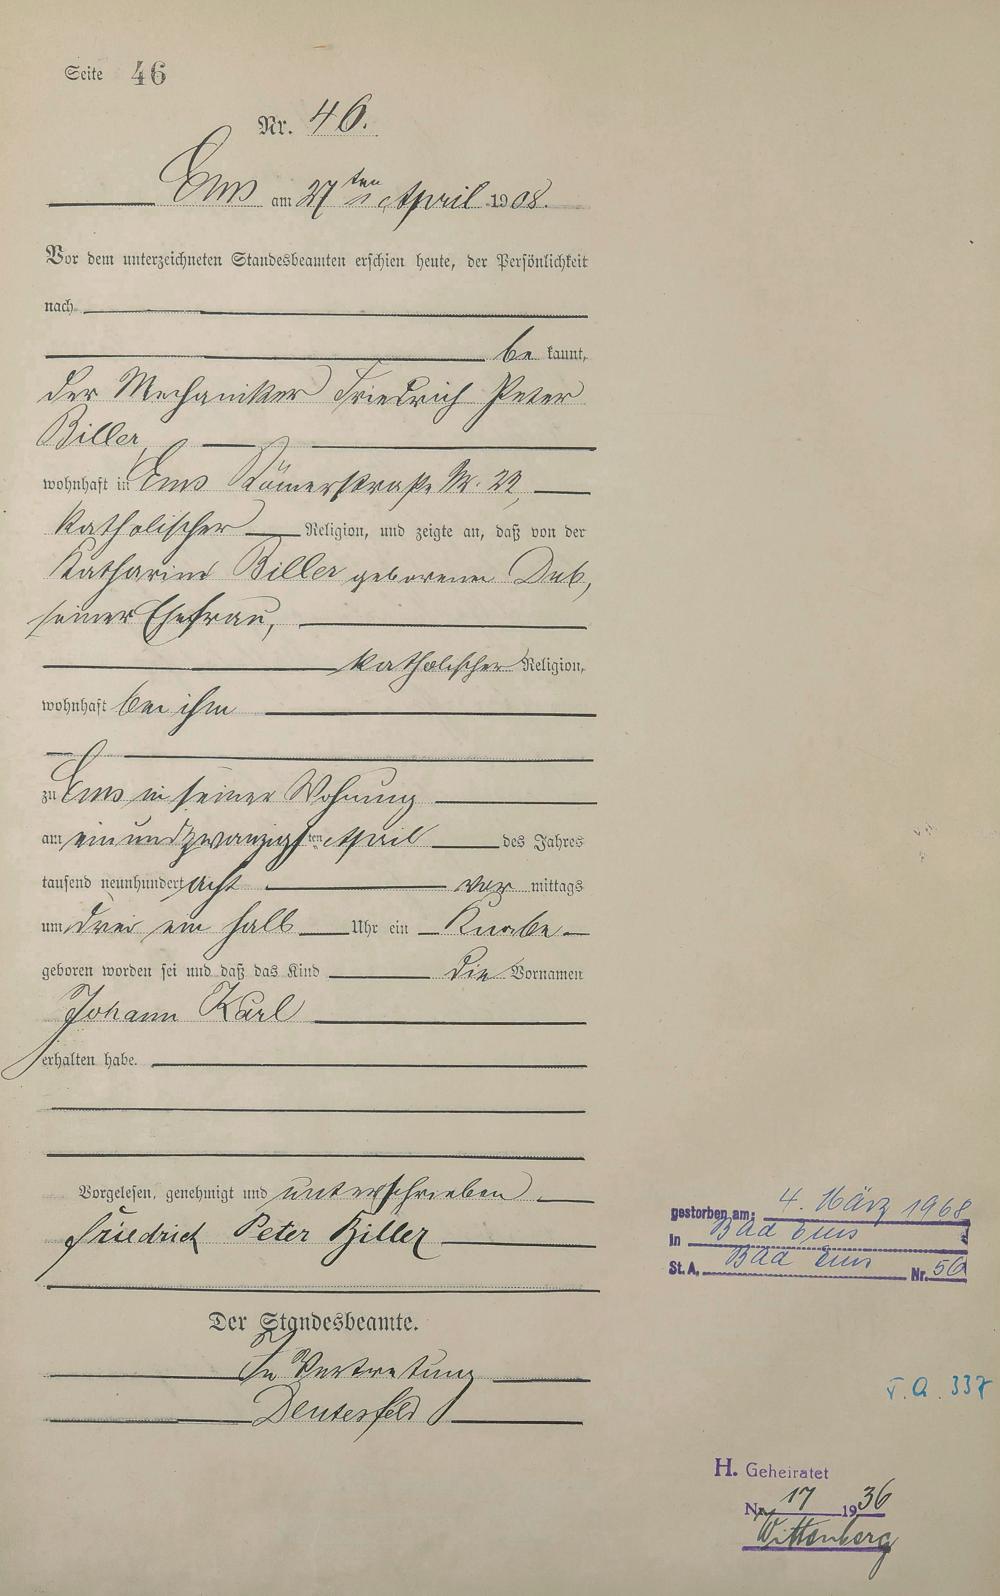 Seite 46
Nr. 46.
Ems am 27 ten April 1908.
Vor dem unterzeichneten Standesbeamten erschien heute, der Persönlichkeit
nach
be kannt,
der Mechaniker Friedrich Peter
Biller,
wohnhaft in Ems Römerstraße Nr. 22,
katholischer Religion, und zeigte an, daß von der
Katharina Biller geborenen Dub,
seiner Ehefrau,
katholischer Religion,
wohnhaft bei ihm
zu Ems in seiner Wohnung
am ein und zwanzigsten April des Jahres
tausend neunhundert acht vor mittags
um drei ein halb Uhr ein Knabe
geboren worden sei und daß das Kind die Vornamen
Johann Karl
erhalten habe.
Vorgelesen, genehmigt und unterschrieben
Friedrich Peter Biller
Der Standesbeamte.
In Vertretung
gestorben am: 4. März 1968
in Bad Ems
St. A. Bad Ems Nr. 56
T. A. 337
H. Geheiratet
Nr. 17 1936
Wittenberg